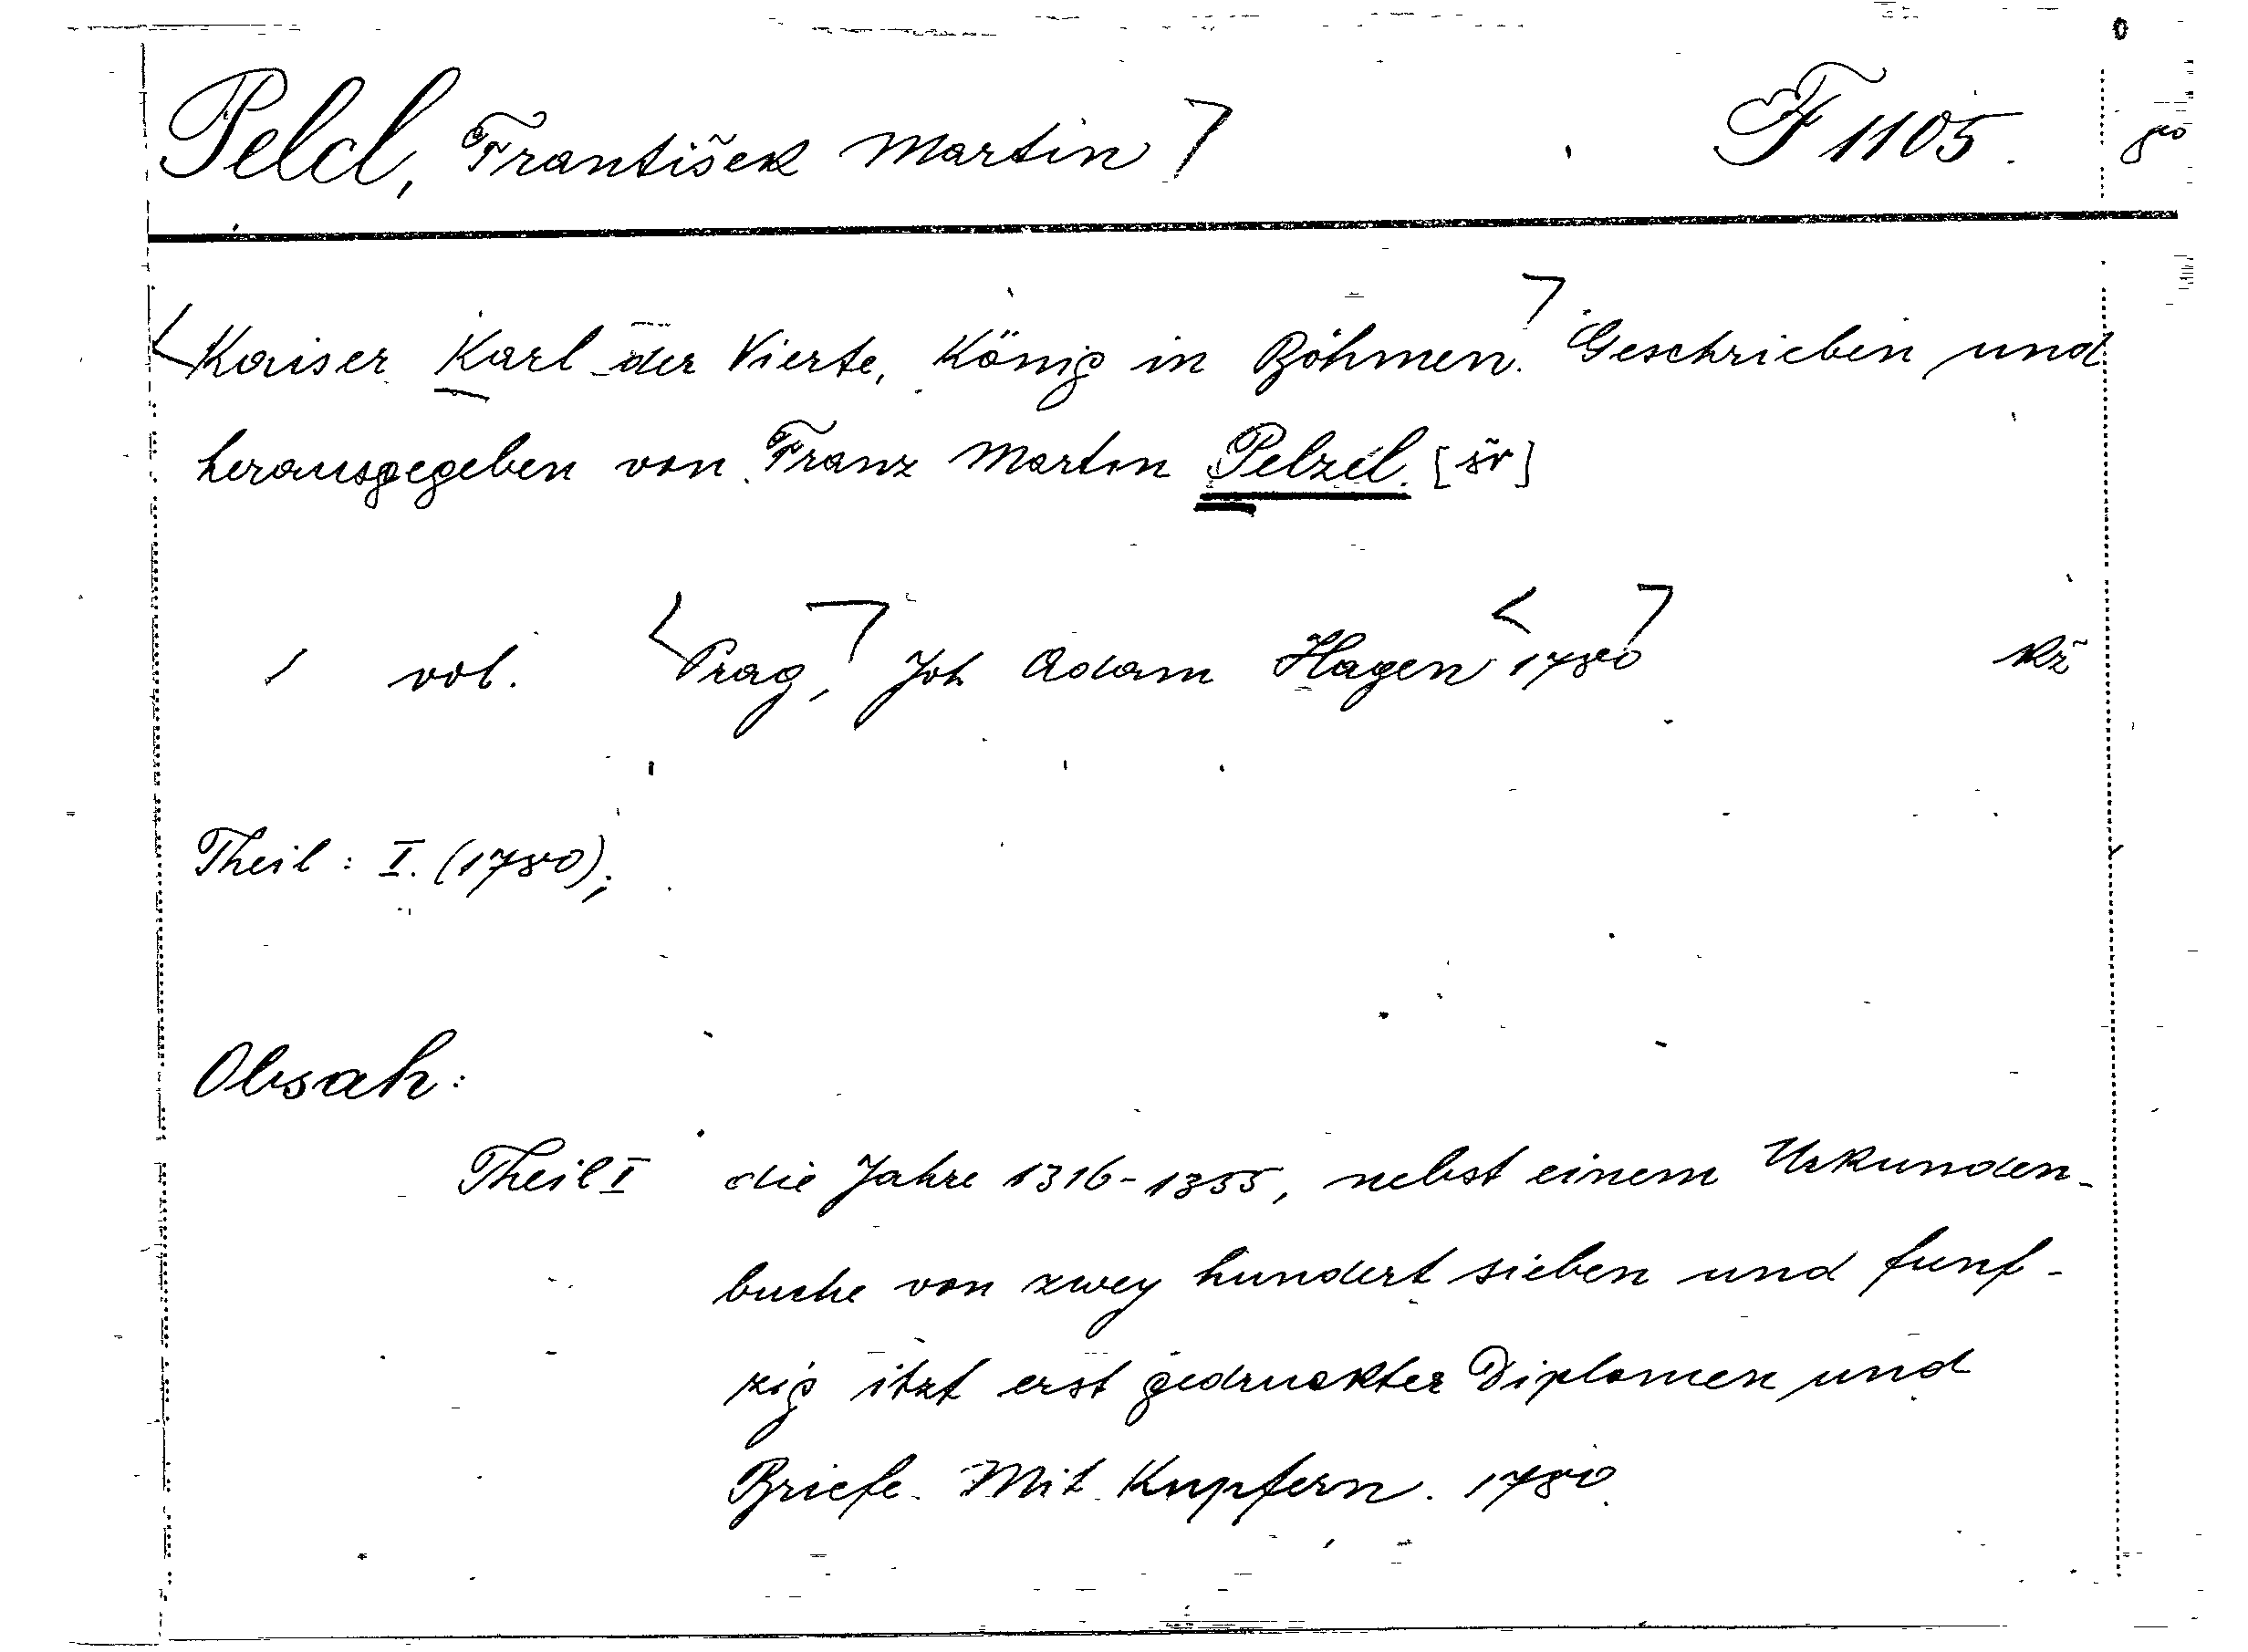 Pelcl, František Martin F 1105.
Kaiser Karl der Vierte, König in Böhmen. Geschrieben und
herausgegeben von Franz Martin Pelzel. [šv]
1 vol. Prag, Joh Adam Hagen 1780 kř
Theil: I. (1780);
Obsah:
Theil I die Jahre 1316-1355, nebst einem Urkunden-
buche von zwey hundert sieben und funf-
zig itzt erst gedruckter Diplomen und
Briefe. Mit Kupfern. 1780.